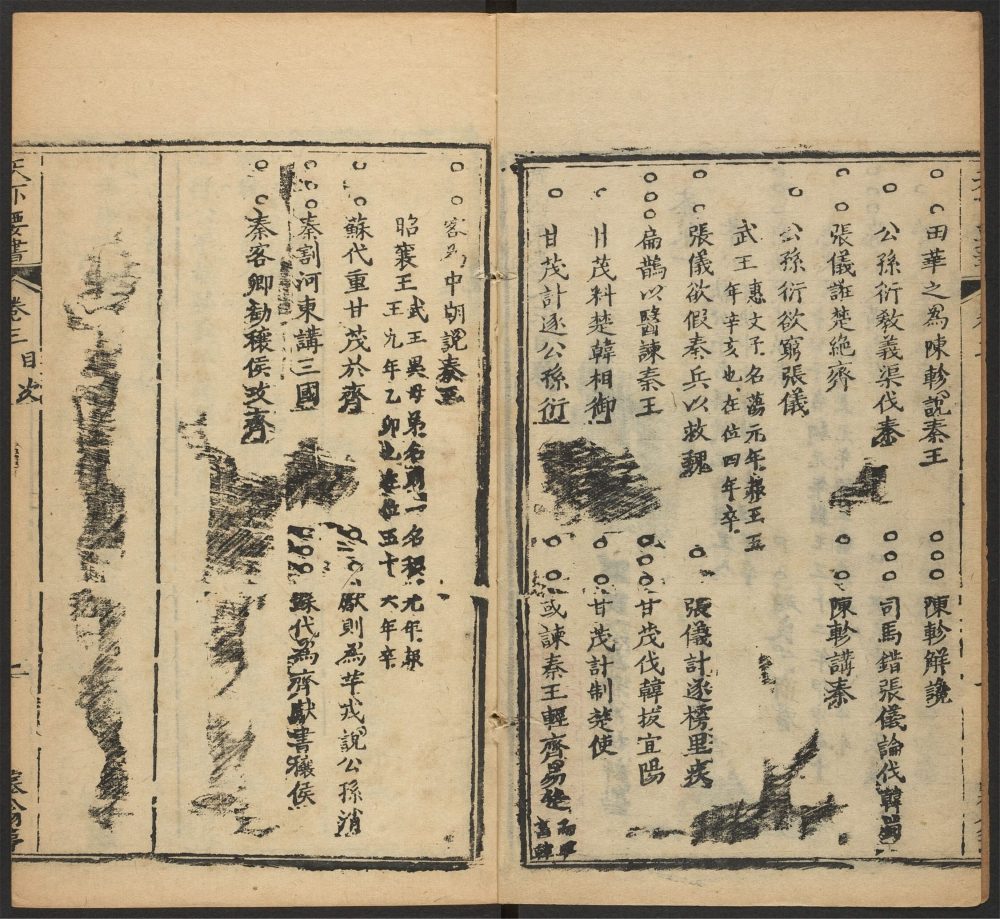 田華之為陳軫說秦王
陳軫解讒
公孫衍教義渠伐秦
司馬錯張儀論伐韓蜀
張儀誑楚絕齊
陳軫講秦
公孫衍欲窮張儀
武王 惠文子名蕩元年
年辛亥也在位四年卒
張儀欲假秦兵以救魏
張儀計逐樗里疾
扁鵲以醫諫秦王
甘茂伐韓拔宜陽
甘茂料楚韓相御
甘茂計制楚使
甘茂計逐公孫衍
或諫秦王輕齊易楚
客為中朝說秦王
昭襄王 武王異母弟名則一名稷元年
王九年乙卯也在位五十六年卒
蘇代重甘茂於齊
獻則為羋戎說公孫消
秦割河東講三國
蘇代為齊獻書穰侯
秦客卿勸穰侯攻齊
天下要書
卷三 目次
二